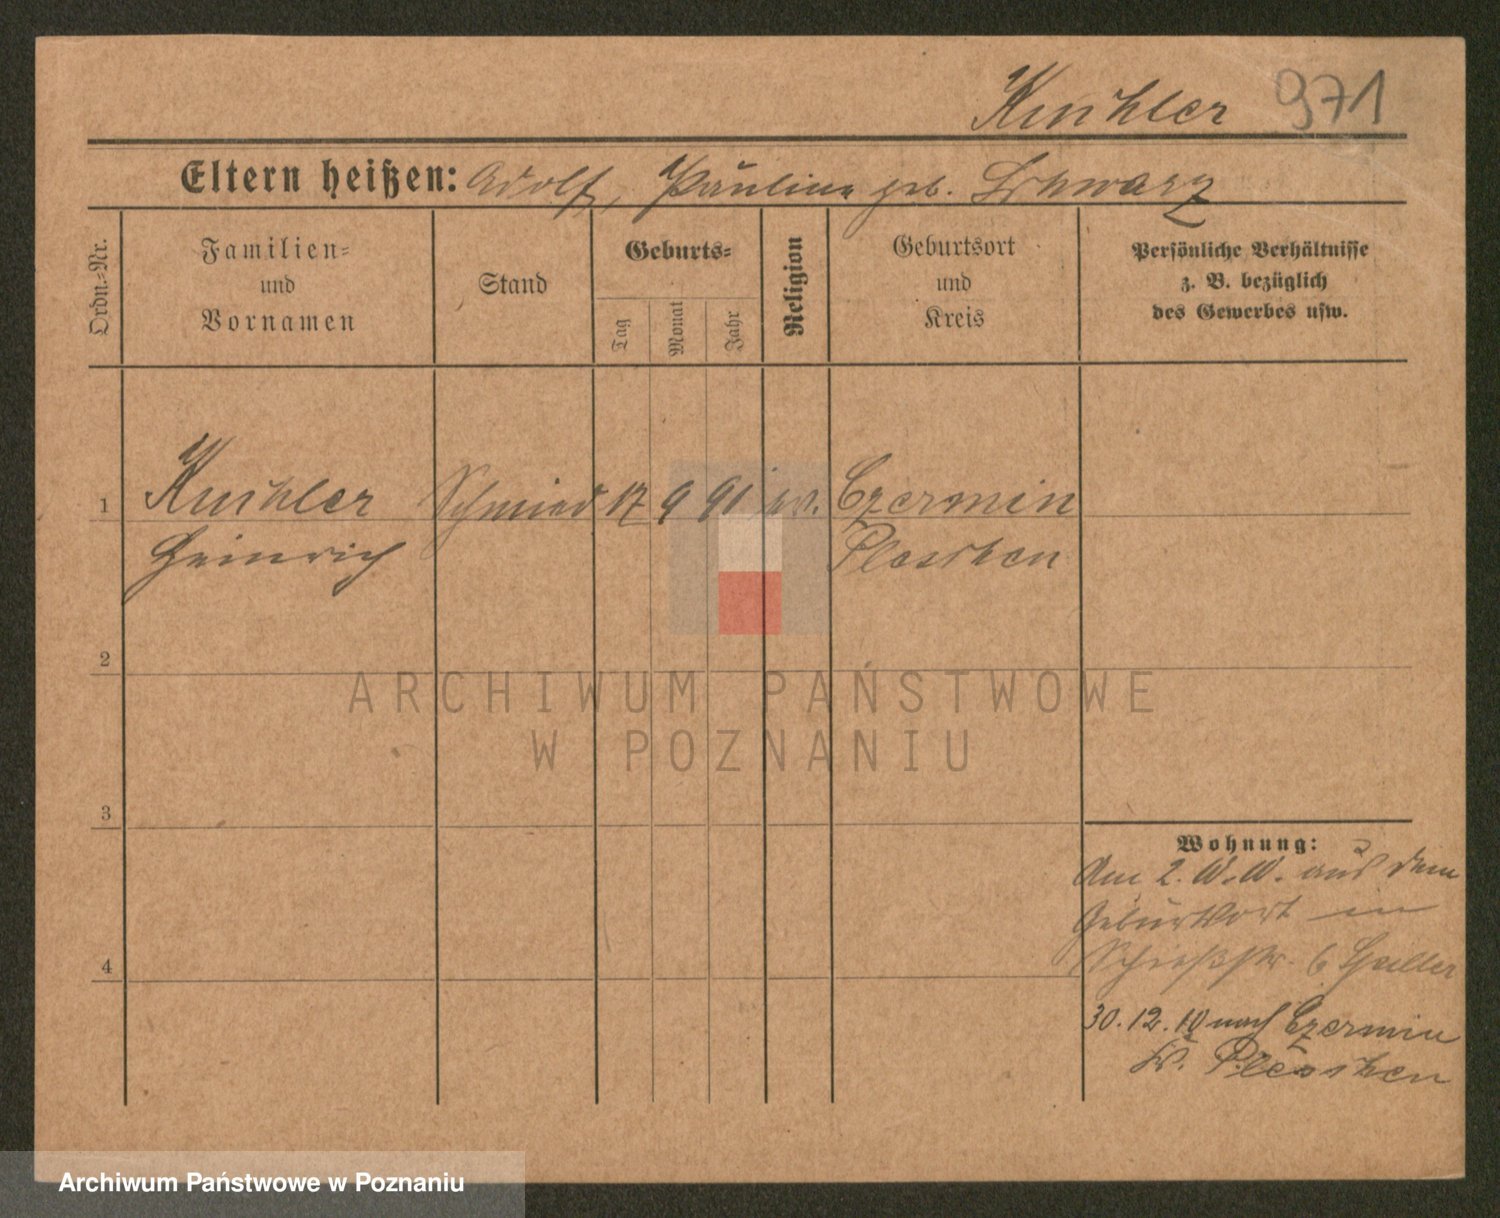 Kuschler 971
Eltern heißen: Adolf, Pauline geb. Schwarz
Ordn.-Nr.
Familien-
und
Vornamen
Stand
Geburts-
Tag
Monat
Jahr
Religion
Geburtsort
und
Kreis
Persönliche Verhältnisse
z. B. bezüglich
des Gewerbes usw.
1 Schmied 17 9 91 ev. Czermin
Heinrich Pleschen
2
3
4
Wohnung:
Am 2. aus dem
Geburtsort in
Schießstr. 6
30.12.10 nach Czermin
Kr. Pleschen
ARCHIWUM PAŃSTWOWE
W POZNANIU
Archiwum Państwowe w Poznaniu